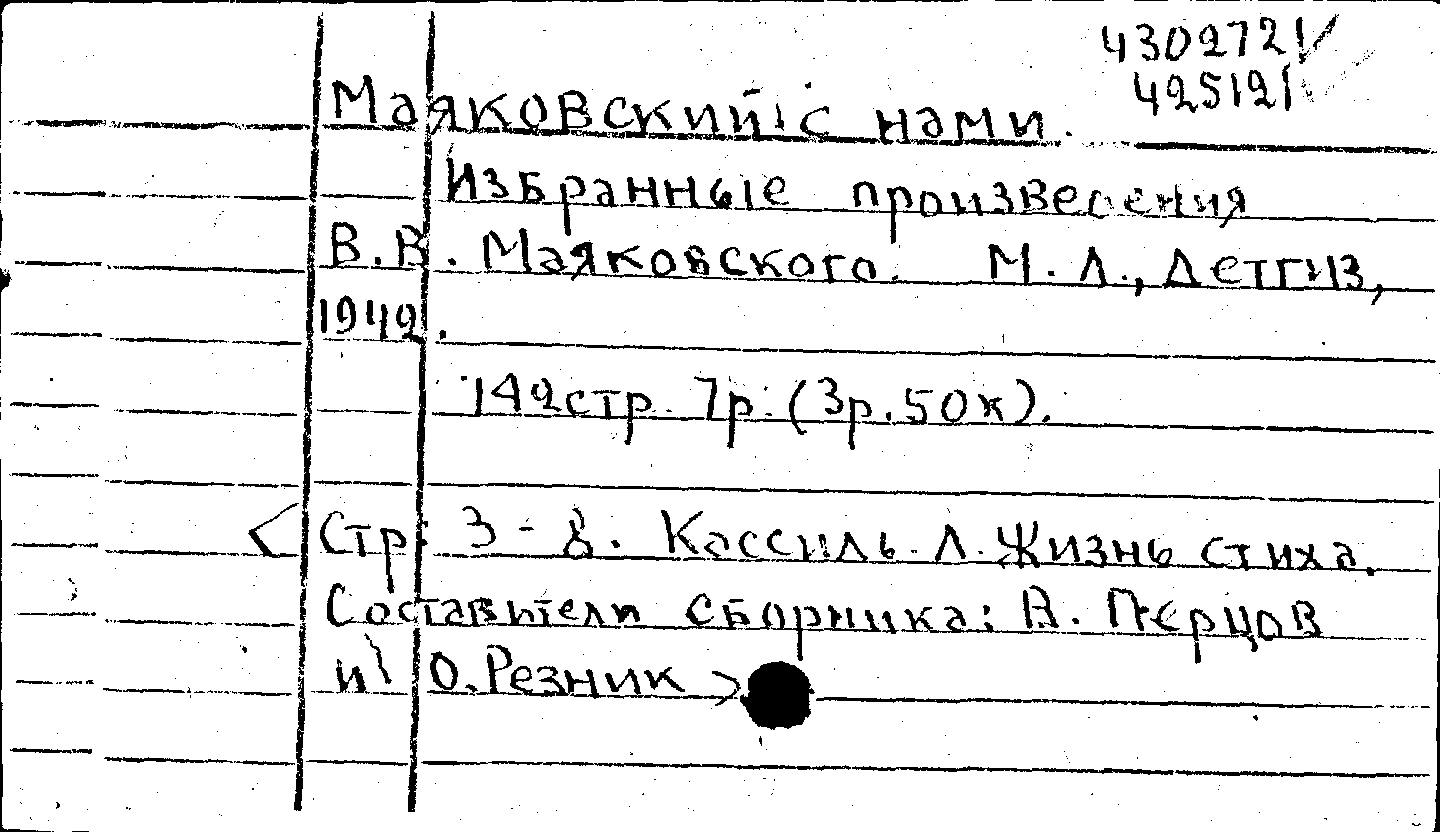 4302721
425121
Маяковский с нами.
Избранные произведения
В.В. Маяковского. М.Л., Детгиз,
1942.
142стр. 7р. (3р.50к).
<Стр. 3-8. Кассиль. Л. Жизнь стиха.
Составители сборника: В. Перцов
и О. Резник>